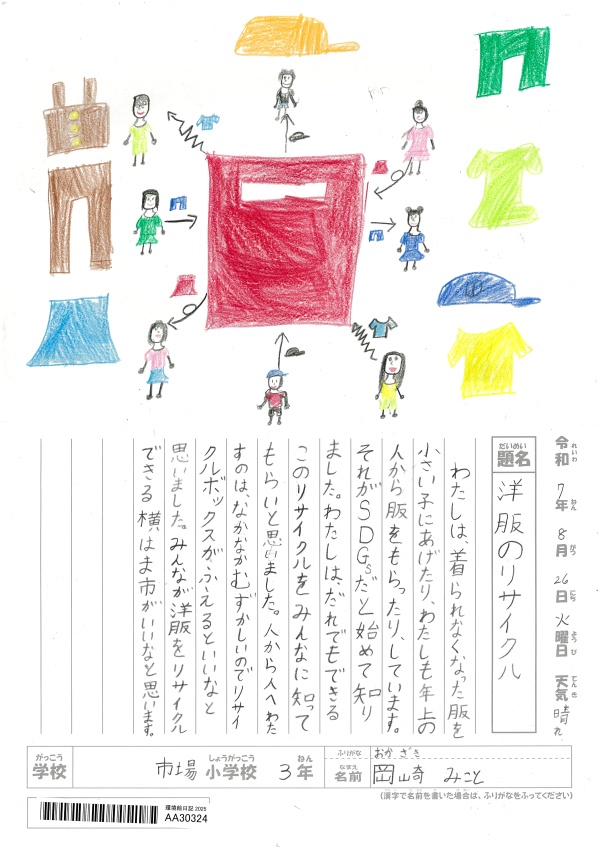 令和7年8月26日火曜日 天気 晴れ
れいわ ねん がつ にち ようび てんき
だいめい
題名 洋服のリサイクル
わたしは、着られなくなった服を
小さい子にあげたり、わたしも年上の
人から服をもらったり、しています。
それがSDGsだと始めて知り
ました。わたしは、だれでもできる
このリサイクルをみんなに知って
もらいと思いました。人から人へわた
すのは、なかなかむずかしいのでリサイ
クルボックスがふえるといいなと
思いました。みんなが洋服をリサイクル
できる横はま市がいいなと思います。
がっこう しょうがっこう ねん
学校 市場 小学校 3年
ふりがな おかざき
なまえ
名前 岡崎 みこと
(漢字で名前を書いた場合は、ふりがなをふってください)
環境絵日記 2025
AA30324